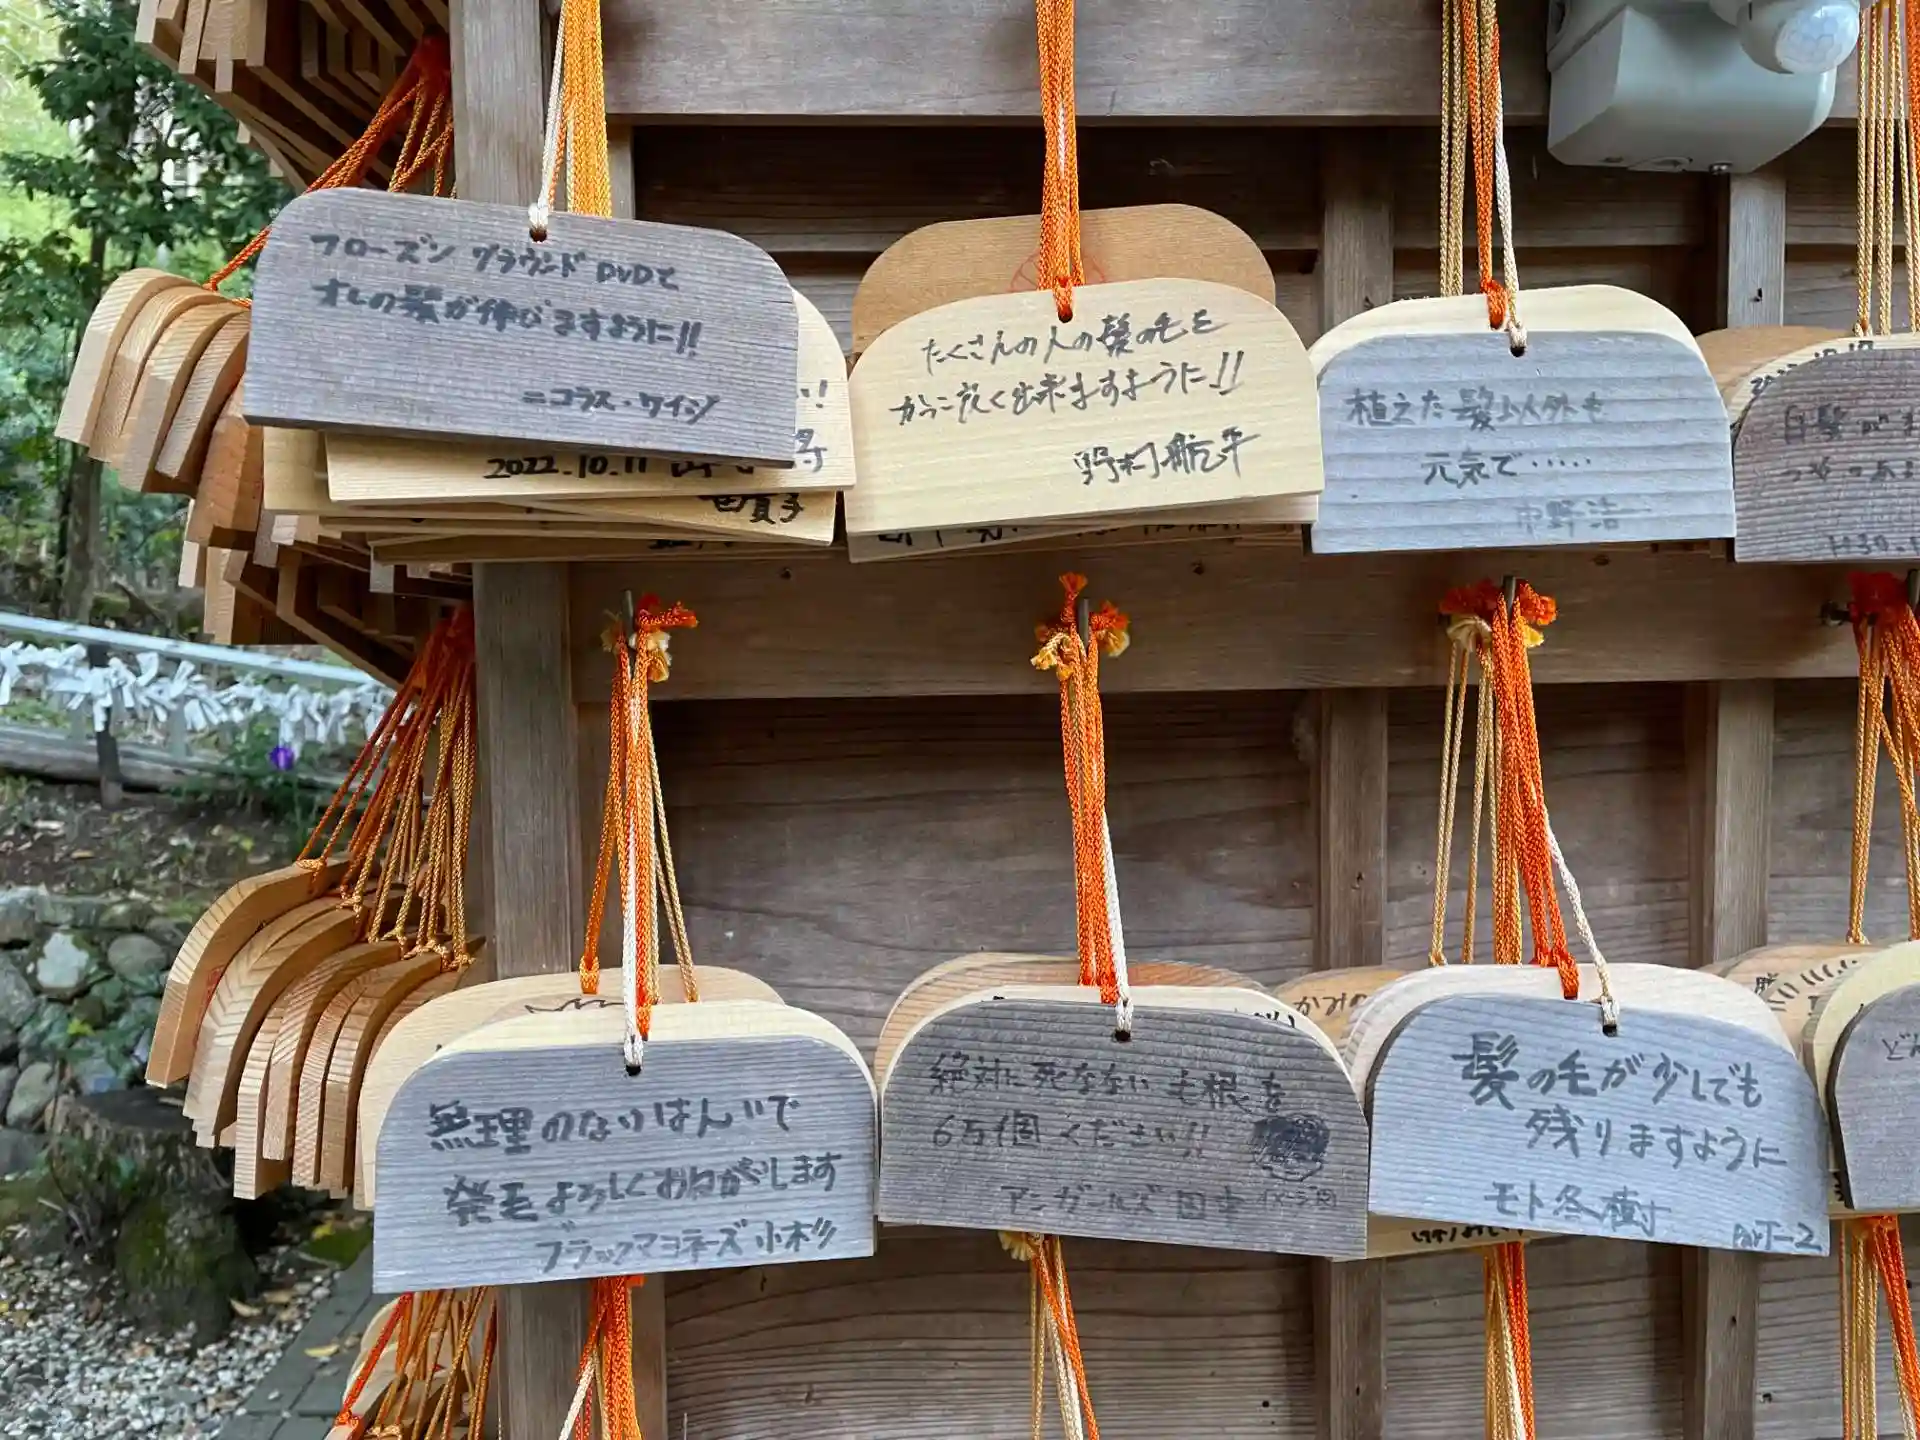 フローズン グラウンド DVDで
オレの髪が伸びますように!!
ニコラス・ケイジ
2022.10.11
たくさんの人の髪の毛を
かっこ良く出来ますように!!
野村 航平
植えた髪以外も
元気で・・・・・
市野浩一
白髪が
H30.1
無理のないはんいで
発毛よろしくおねがいします
ブラックマヨネーズ 小杉
絶対に死なない毛根を
6万個ください!!
アンガールズ 田中
イメージ図
髪の毛が少しでも
残りますように
モト冬樹
ParT-2
どん